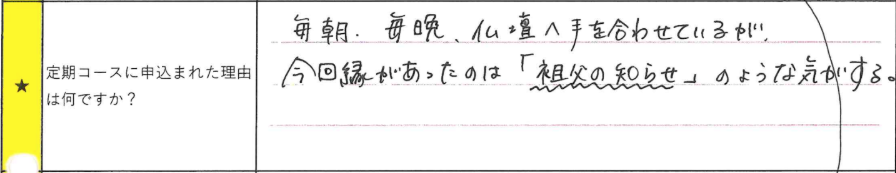 ★
定期コースに申込まれた理由
は何ですか?
毎朝.毎晩、仏壇へ手を合わせているが、
今回縁があったのは「祖父の知らせ」のような気がする。